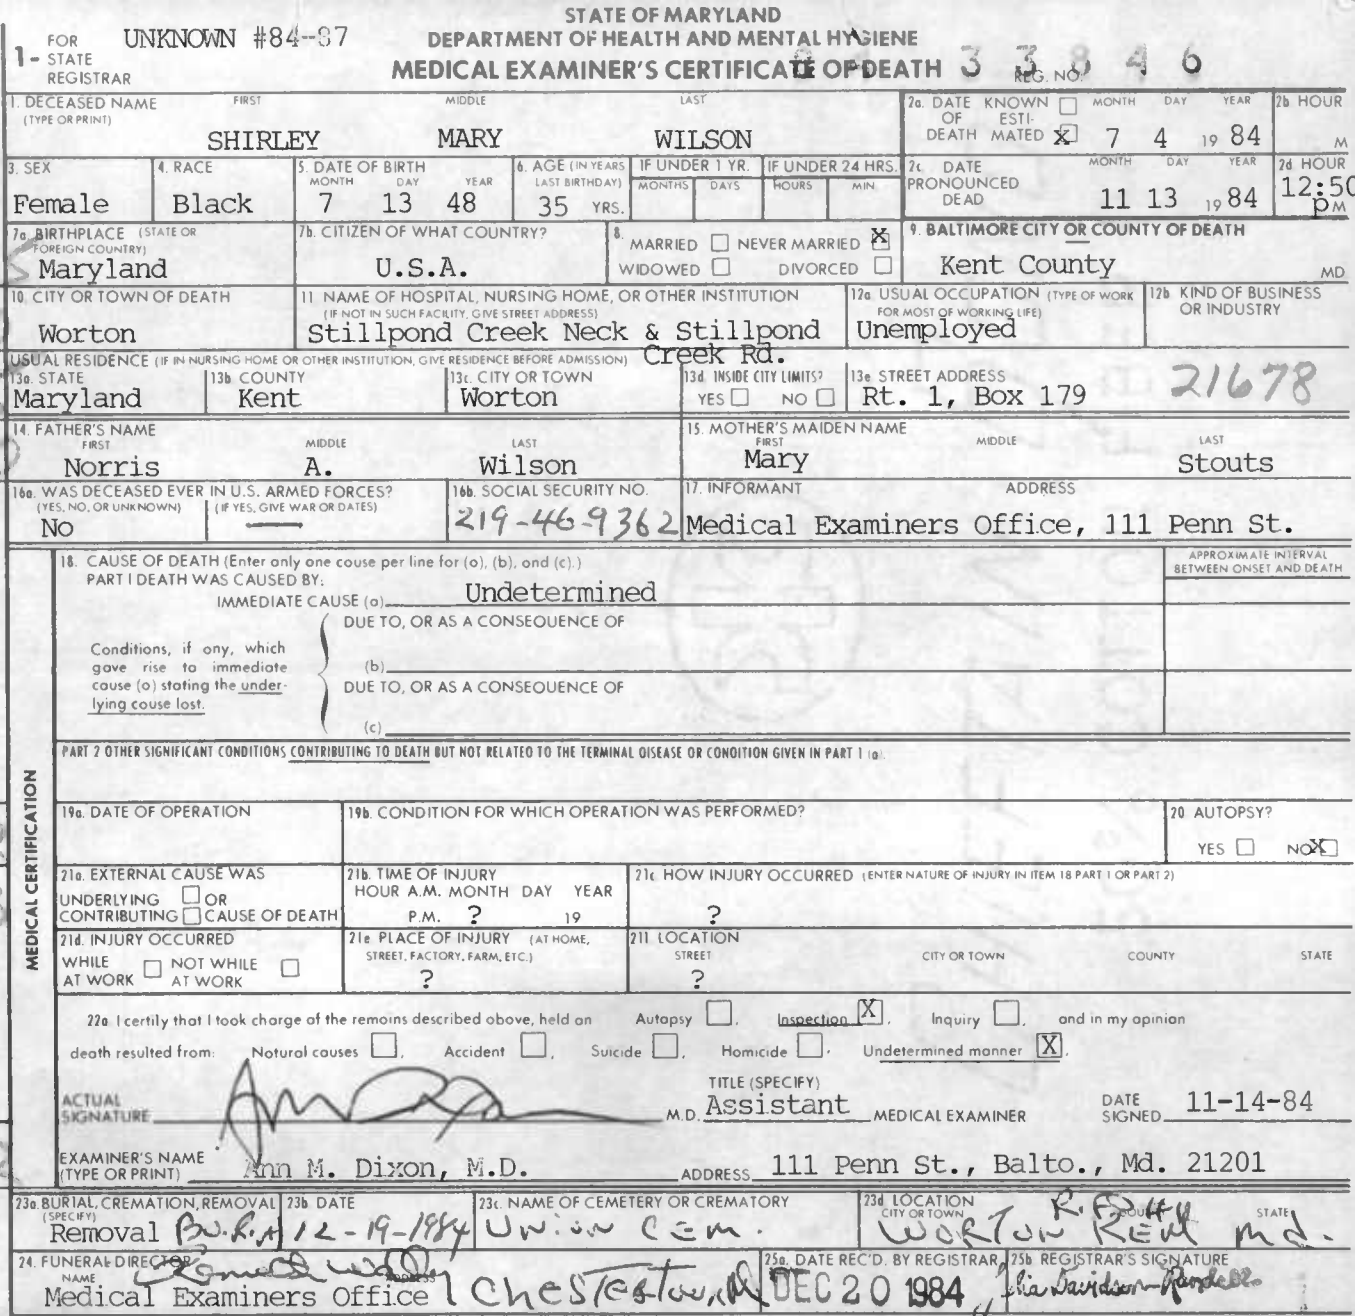 STATE OF MARYLAND
DEPARTMENT OF HEALTH AND MENTAL HYGIENE
MEDICAL EXAMINER'S CERTIFICATE OF DEATH
1- FOR STATE REGISTRAR
UNKNOWN #84-87
REG. NO. 33846
1. DECEASED NAME (TYPE OR PRINT) FIRST MIDDLE LAST
SHIRLEY MARY WILSON
2a. DATE OF DEATH KNOWN ☐ ESTIMATED ☒ MONTH DAY YEAR
7 4 1984
2b HOUR M
3. SEX
Female
4. RACE
Black
5. DATE OF BIRTH MONTH DAY YEAR
7 13 48
6. AGE (IN YEARS LAST BIRTHDAY)
35 YRS.
IF UNDER 1 YR. MONTHS DAYS
IF UNDER 24 HRS. HOURS MIN
2c. DATE PRONOUNCED DEAD MONTH DAY YEAR
11 13 1984
2d HOUR
12:50 PM
7a BIRTHPLACE (STATE OR FOREIGN COUNTRY)
Maryland
7b. CITIZEN OF WHAT COUNTRY?
U.S.A.
8. MARRIED ☐ NEVER MARRIED ☒
WIDOWED ☐ DIVORCED ☐
9. BALTIMORE CITY OR COUNTY OF DEATH
Kent County MD
10. CITY OR TOWN OF DEATH
Worton
11. NAME OF HOSPITAL, NURSING HOME, OR OTHER INSTITUTION
(IF NOT IN SUCH FACILITY, GIVE STREET ADDRESS)
Stillpond Creek Neck & Stillpond
Creek Rd.
12a USUAL OCCUPATION (TYPE OF WORK FOR MOST OF WORKING LIFE)
Unemployed
12b KIND OF BUSINESS OR INDUSTRY
USUAL RESIDENCE (IF IN NURSING HOME OR OTHER INSTITUTION, GIVE RESIDENCE BEFORE ADMISSION)
13a. STATE
Maryland
13b COUNTY
Kent
13c. CITY OR TOWN
Worton
13d. INSIDE CITY LIMITS?
YES ☐ NO ☐
13e STREET ADDRESS
Rt. 1, Box 179
21678
14. FATHER'S NAME FIRST MIDDLE LAST
Norris A. Wilson
15. MOTHER'S MAIDEN NAME FIRST MIDDLE LAST
Mary Stouts
16a. WAS DECEASED EVER IN U.S. ARMED FORCES?
(YES, NO, OR UNKNOWN) (IF YES, GIVE WAR OR DATES)
No —
16b. SOCIAL SECURITY NO.
219-46-9362
17. INFORMANT ADDRESS
Medical Examiners Office, 111 Penn St.
MEDICAL CERTIFICATION
18. CAUSE OF DEATH (Enter only one couse per line for (a), (b), and (c).)
APPROXIMATE INTERVAL BETWEEN ONSET AND DEATH
PART I DEATH WAS CAUSED BY:
IMMEDIATE CAUSE (a) Undetermined
DUE TO, OR AS A CONSEQUENCE OF
Conditions, if any, which
gave rise to immediate
cause (a) stating the under-
lying couse last.
(b)
DUE TO, OR AS A CONSEQUENCE OF
(c)
PART 2 OTHER SIGNIFICANT CONDITIONS CONTRIBUTING TO DEATH BUT NOT RELATED TO THE TERMINAL DISEASE OR CONDITION GIVEN IN PART 1 (a).
19a. DATE OF OPERATION
19b. CONDITION FOR WHICH OPERATION WAS PERFORMED?
20. AUTOPSY?
YES ☐ NO ☒
21a. EXTERNAL CAUSE WAS
UNDERLYING ☐ OR
CONTRIBUTING ☐ CAUSE OF DEATH
21b. TIME OF INJURY
HOUR A.M. MONTH DAY YEAR
P.M. ? 19
21c HOW INJURY OCCURRED (ENTER NATURE OF INJURY IN ITEM 18 PART 1 OR PART 2)
?
21d. INJURY OCCURRED
WHILE AT WORK ☐ NOT WHILE AT WORK ☐
21e PLACE OF INJURY (AT HOME, STREET, FACTORY, FARM, ETC.)
?
21f LOCATION STREET CITY OR TOWN COUNTY STATE
?
22a I certify that I took charge of the remains described above, held an Autopsy ☐, Inspection ☒, Inquiry ☐, and in my opinion
death resulted from: Natural causes ☐, Accident ☐, Suicide ☐, Homicide ☐, Undetermined manner ☒.
ACTUAL SIGNATURE M.D.
TITLE (SPECIFY)
Assistant MEDICAL EXAMINER
DATE SIGNED 11-14-84
EXAMINER'S NAME (TYPE OR PRINT) Ann M. Dixon, M.D.
ADDRESS 111 Penn St., Balto., Md. 21201
23a. BURIAL, CREMATION, REMOVAL (SPECIFY)
Removal
23b DATE
12-19-1984
23c. NAME OF CEMETERY OR CREMATORY
Union Cem.
23d. LOCATION CITY OR TOWN COUNTY STATE
Worton Kent Md.
24. FUNERAL DIRECTOR NAME ADDRESS
Medical Examiners Office
25a. DATE REC'D. BY REGISTRAR
DEC 20 1984
25b REGISTRAR'S SIGNATURE